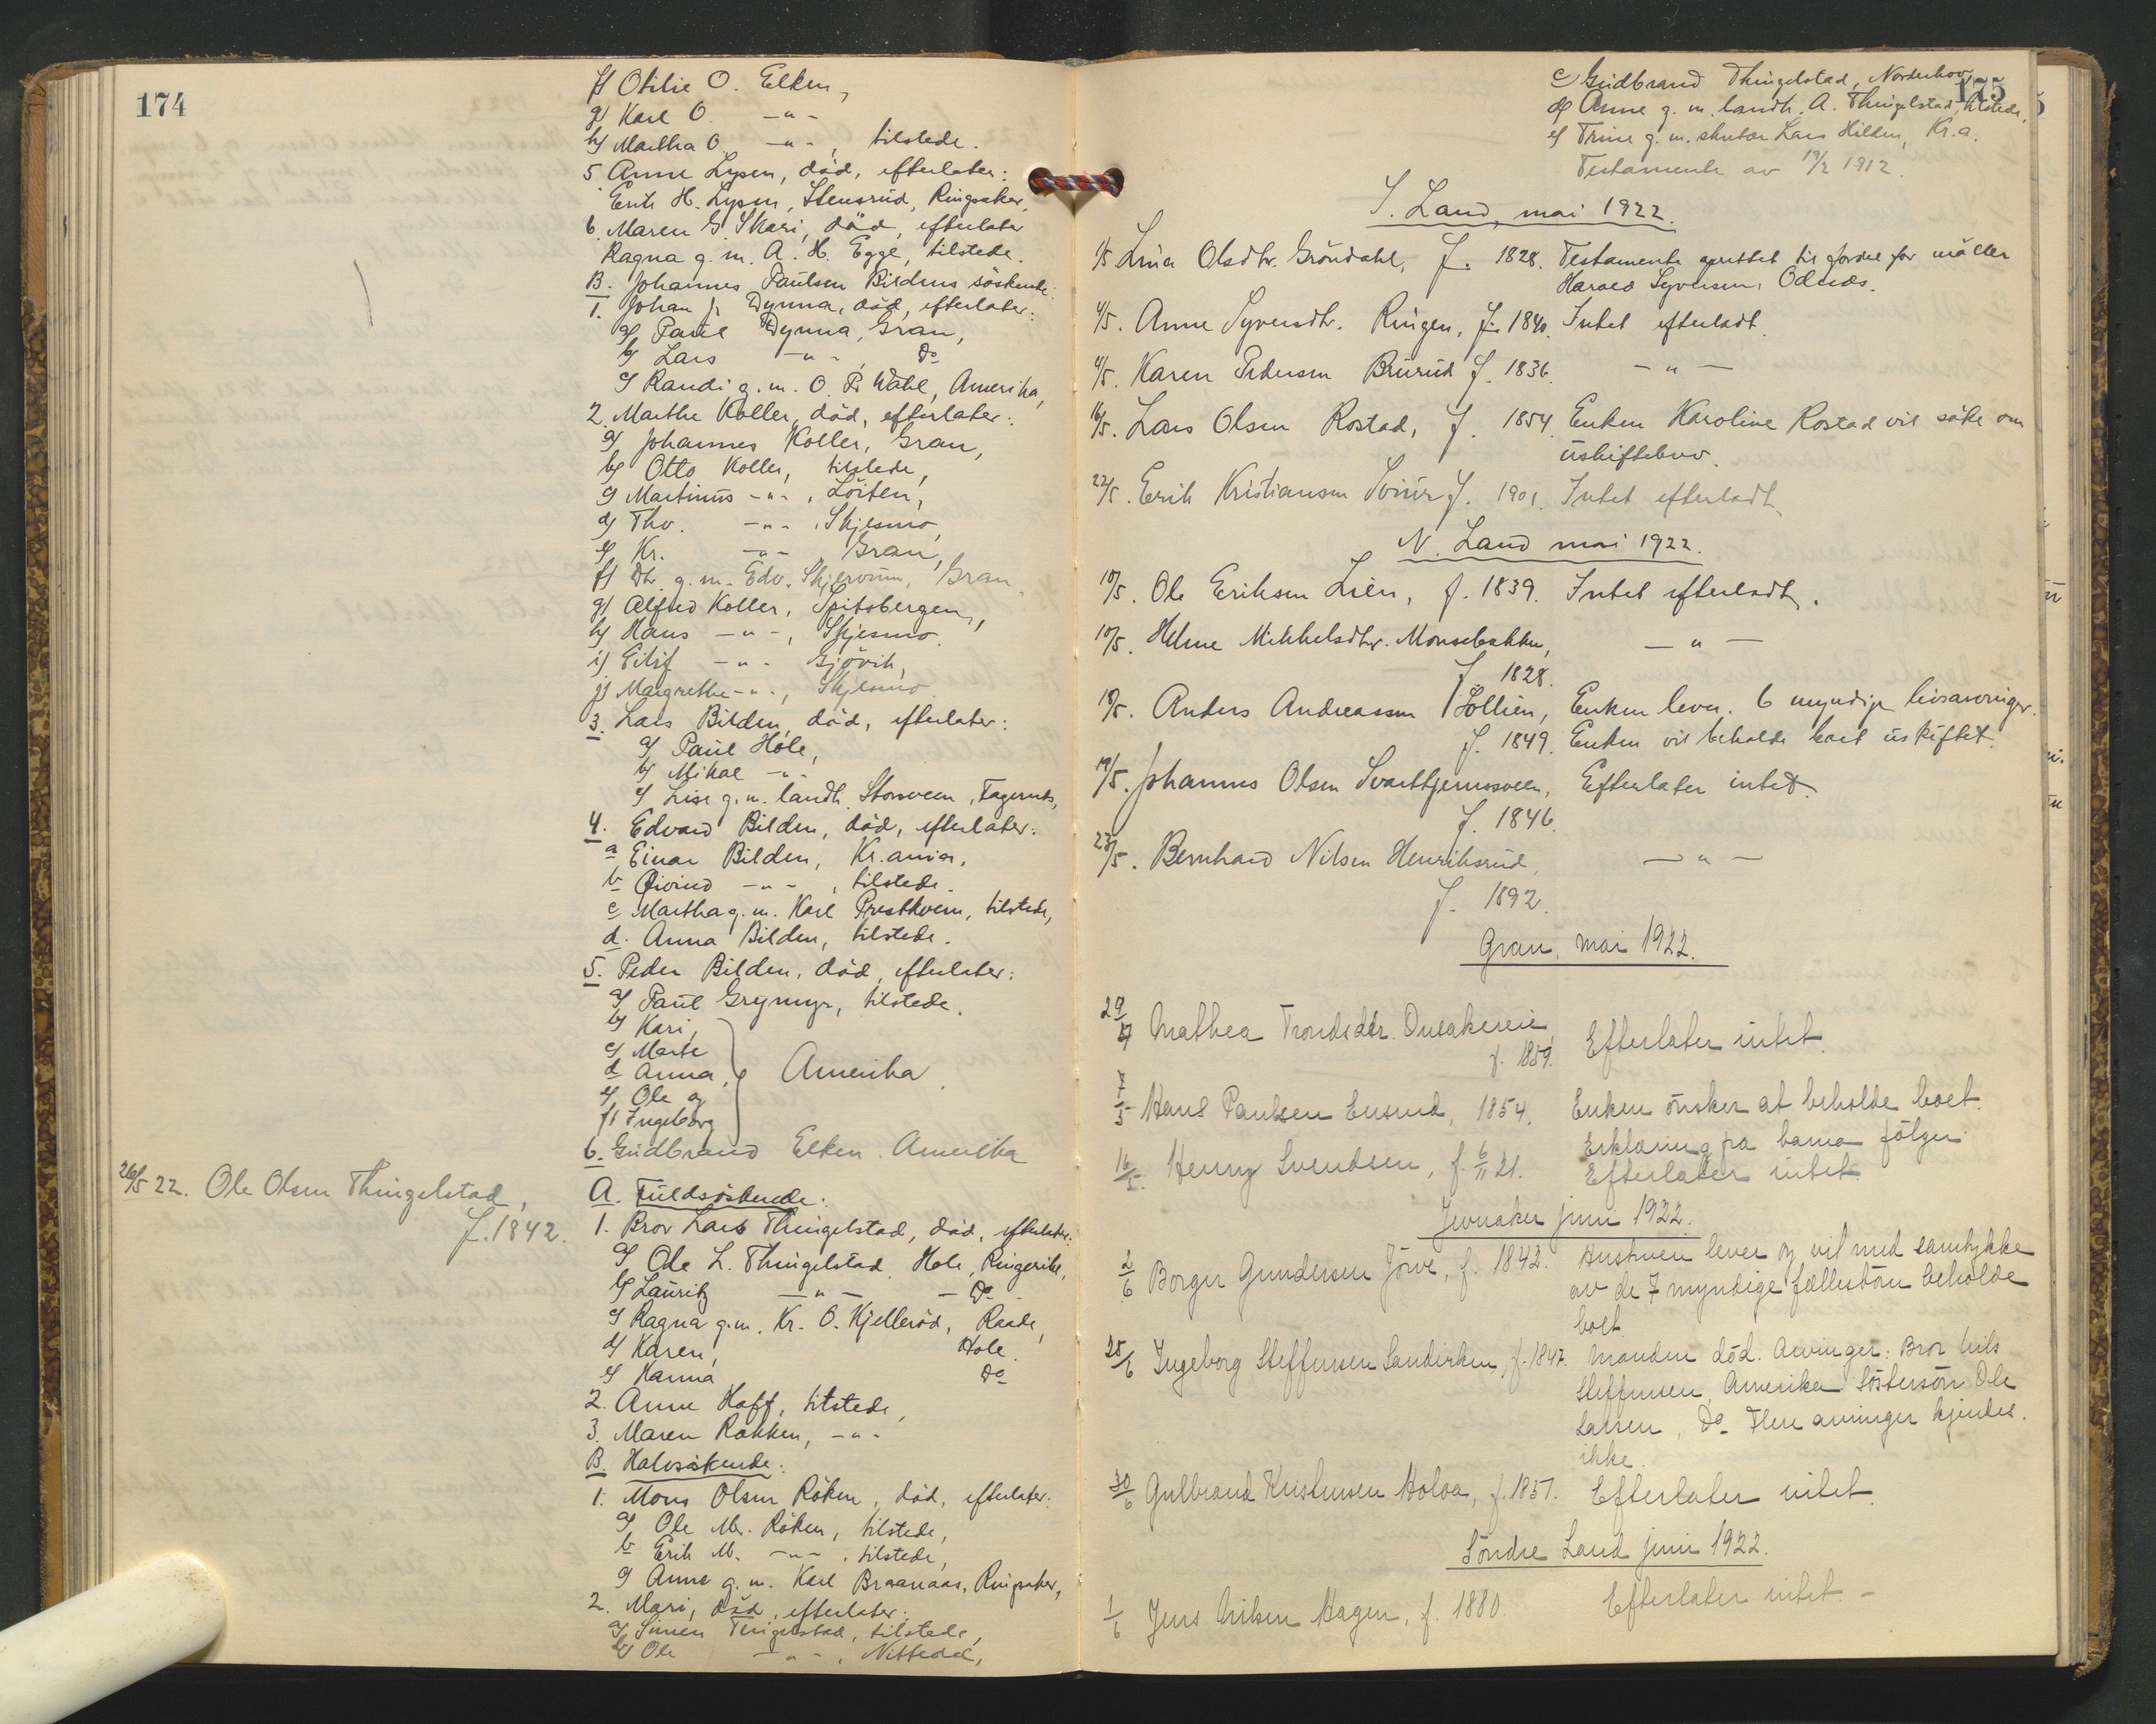 174
f) Otilie O. Elken,
g) Karl O. -"-
h) Martha O. -"-, tilstede.
5 Anne Lysen, död, efterlater:
Erik H. Lysen, Stensrud, Ringsaker,
6. Maren G. Skari, död, efterlater
Ragna g. m. A. H. Egge, tilstede.
B. Johannes Paulsen Bildens söskende:
1. Johan Dynna, död, efterlater:
a) Paul Dynna, Gran,
b) Lars -"-, Do
c) Randi g. m. O. P. Wahl, Amerika,
2. Marthe Koller, död, efterlater:
a) Johannes Koller, Gran,
b) Otto Koller, tilstede,
c) Martinus -"-, Löiten,
d) Thv. -"-, Skjesmo,
e) Kr. -"-, Gran,
f) Dtr. g. m. Edv. Skjervum, Gran
g) Alfred Koller, Spitsbergen,
h) Hans -"-, Skjesmo.
i) Eilif -"- Gjövik,
j) Margrethe -"-, Skjesmo.
3. Lars Bilden, död, efterlater:
a) Paul Hole,
b) Mikal -"-
c) Lise g. m. landh. Storsveen, Fagernes,
4. Edvard Bilden, död, efterlater:
a Einar Bilden, Kr.ania,
b Öivind -"-, tilstede.
c Martha g. m. Karl Prestkvern, tilstede,
d. Anna Bilden, tilstede.
5. Peder Bilden, död, efterlater:
a) Paul Grymyr, tilstede.
b) Kari,
c) Marte
d Anna, Amerika.
e) Ole og
f) Ingeborg
6. Gudbrand Elken. Amerika
26/5 22. Ole Olsen Thingelstad,
f. 1842.
A. Fuldsöskende:
1. Bror Lars Thingelstad, död, efterlater:
a) Ole L. Thingelstad, Hole, Ringerike,
b) Lauritz -"- - Do -
c) Ragna g. m. Kr. O. Kjelleröd, Raade,
d) Karen, Hole.
e) Hanna Do
2. Anne Hoff, tilstede,
3. Maren Rökken, -"-
B. Halvsöskende:
1. Mons Olsen Röken, död, efterlater:
a) Ole M. Röken, tilstede,
b Erik M. -"-, tilstede,
c) Anne g. m. Karl Braanaas, Ringsaker,
2. Mari, död, efterlater:
a) Simen Tingelstad, tilstede,
b) Ole -"-, Nittedal,
175
c) Gudbrand Thingelstad, Norderhov,
d) Anne g. m. landh. A. Thingelstad, tilstede,
e) Trine g. m. skrædder Lars Hilden, Kr.a.
Testamente av 19/2 1912.
S. Land, mai 1922.
1/5 Lina Olsdtr. Gröndahl, f. 1828. Testamente oprettet til fordel for möller
Harald Syversen, Odnes.
4/5. Anne Syversdtr. Ringen, f. 1840. Intet efterladt.
4/5. Karen Pedersen Brurud f. 1836. -"-
16/5. Lars Olsen Rostad, f. 1854. Enken Karoline Rostad vil söke om
uskiftebev.
22/5. Erik Kristiansen f. 1901. Intet efterladt.
N. Land mai 1922.
10/5. Ole Eriksen Lien, f. 1839. Intet efterladt.
10/5. Helene Mikkelsdtr. Monsebakken, -"-
f. 1828.
18/5. Anders Andreassen Sollien, Enken lever. 6 myndige livsarvinger.
f. 1849. Enken vil beholde boet uskiftet.
19/5. Johannes Olsen Svarttjernssveen, Efterlater intet.
f. 1846.
23/5. Bernhard Nilsen Henriksrud, -"-
f. 1892.
Gran, mai 1922.
29/4 Mathea Trondsdtr. Onsakereie, Efterlater intet.
f. 1859.
7/5 Hans Paulsen Ensrud, 1854. Enken önsker at beholde boet.
Erklæring fra barna fölger.
16/5. Henny Svendsen, f. 6/11 21. Efterlater intet.
Jevnaker juni 1922.
2/6 Borger Gundersen Jörve, f. 1842. Hustruen lever og vil med samtykke
av de 7 myndige fællesbörn beholde
boet.
25/6 Ingeborg Steffensen Sandviken, f. 1847. Manden död. Arvinger: Bror Nils
Steffensen, Amerika. Söstersön Ole
Larsen, Do. Flere arvinger kjendes
ikke.
30/6 Gulbrand Kristensen Holoa, f. 1851. Efterlater intet.
Söndre Land juni 1922.
1/6 Jens Nilsen Hagen, f. 1880. Efterlater intet. -